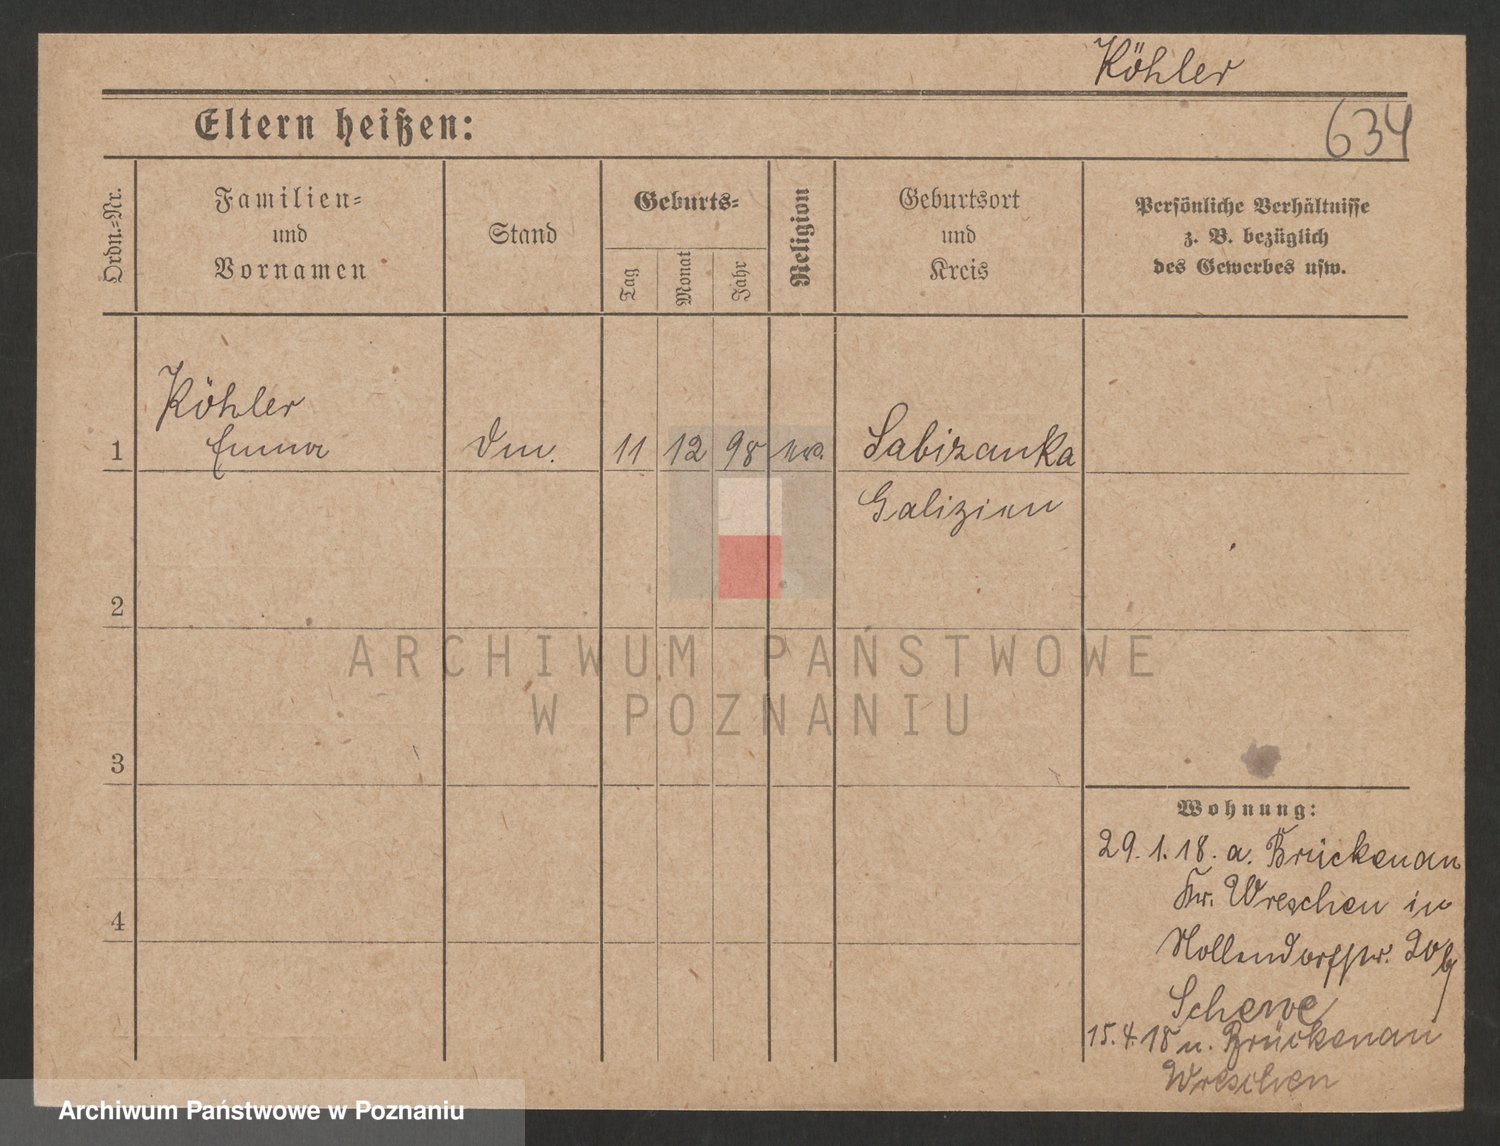 Köhler
634
Eltern heißen:
Ordn.-Nr.
Familien-
und
Vornamen
Stand
Geburts-
Tag
Monat
Jahr
Religion
Geburtsort
und
Kreis
Persönliche Verhältnisse
z. B. bezüglich
des Gewerbes usw.
Köhler
1 Emma 11 12 98 Sabizanka
Galizien
2
3
ARCHIWUM PAŃSTWOWE
W POZNANIU
Wohnung:
29.1.18. a. Brückenau
Kr. Wreschen in
Nollendorfstr. 20 b/
Schewe
4
15.4.18 n. Brückenau
Wreschen
Archiwum Państwowe w Poznaniu